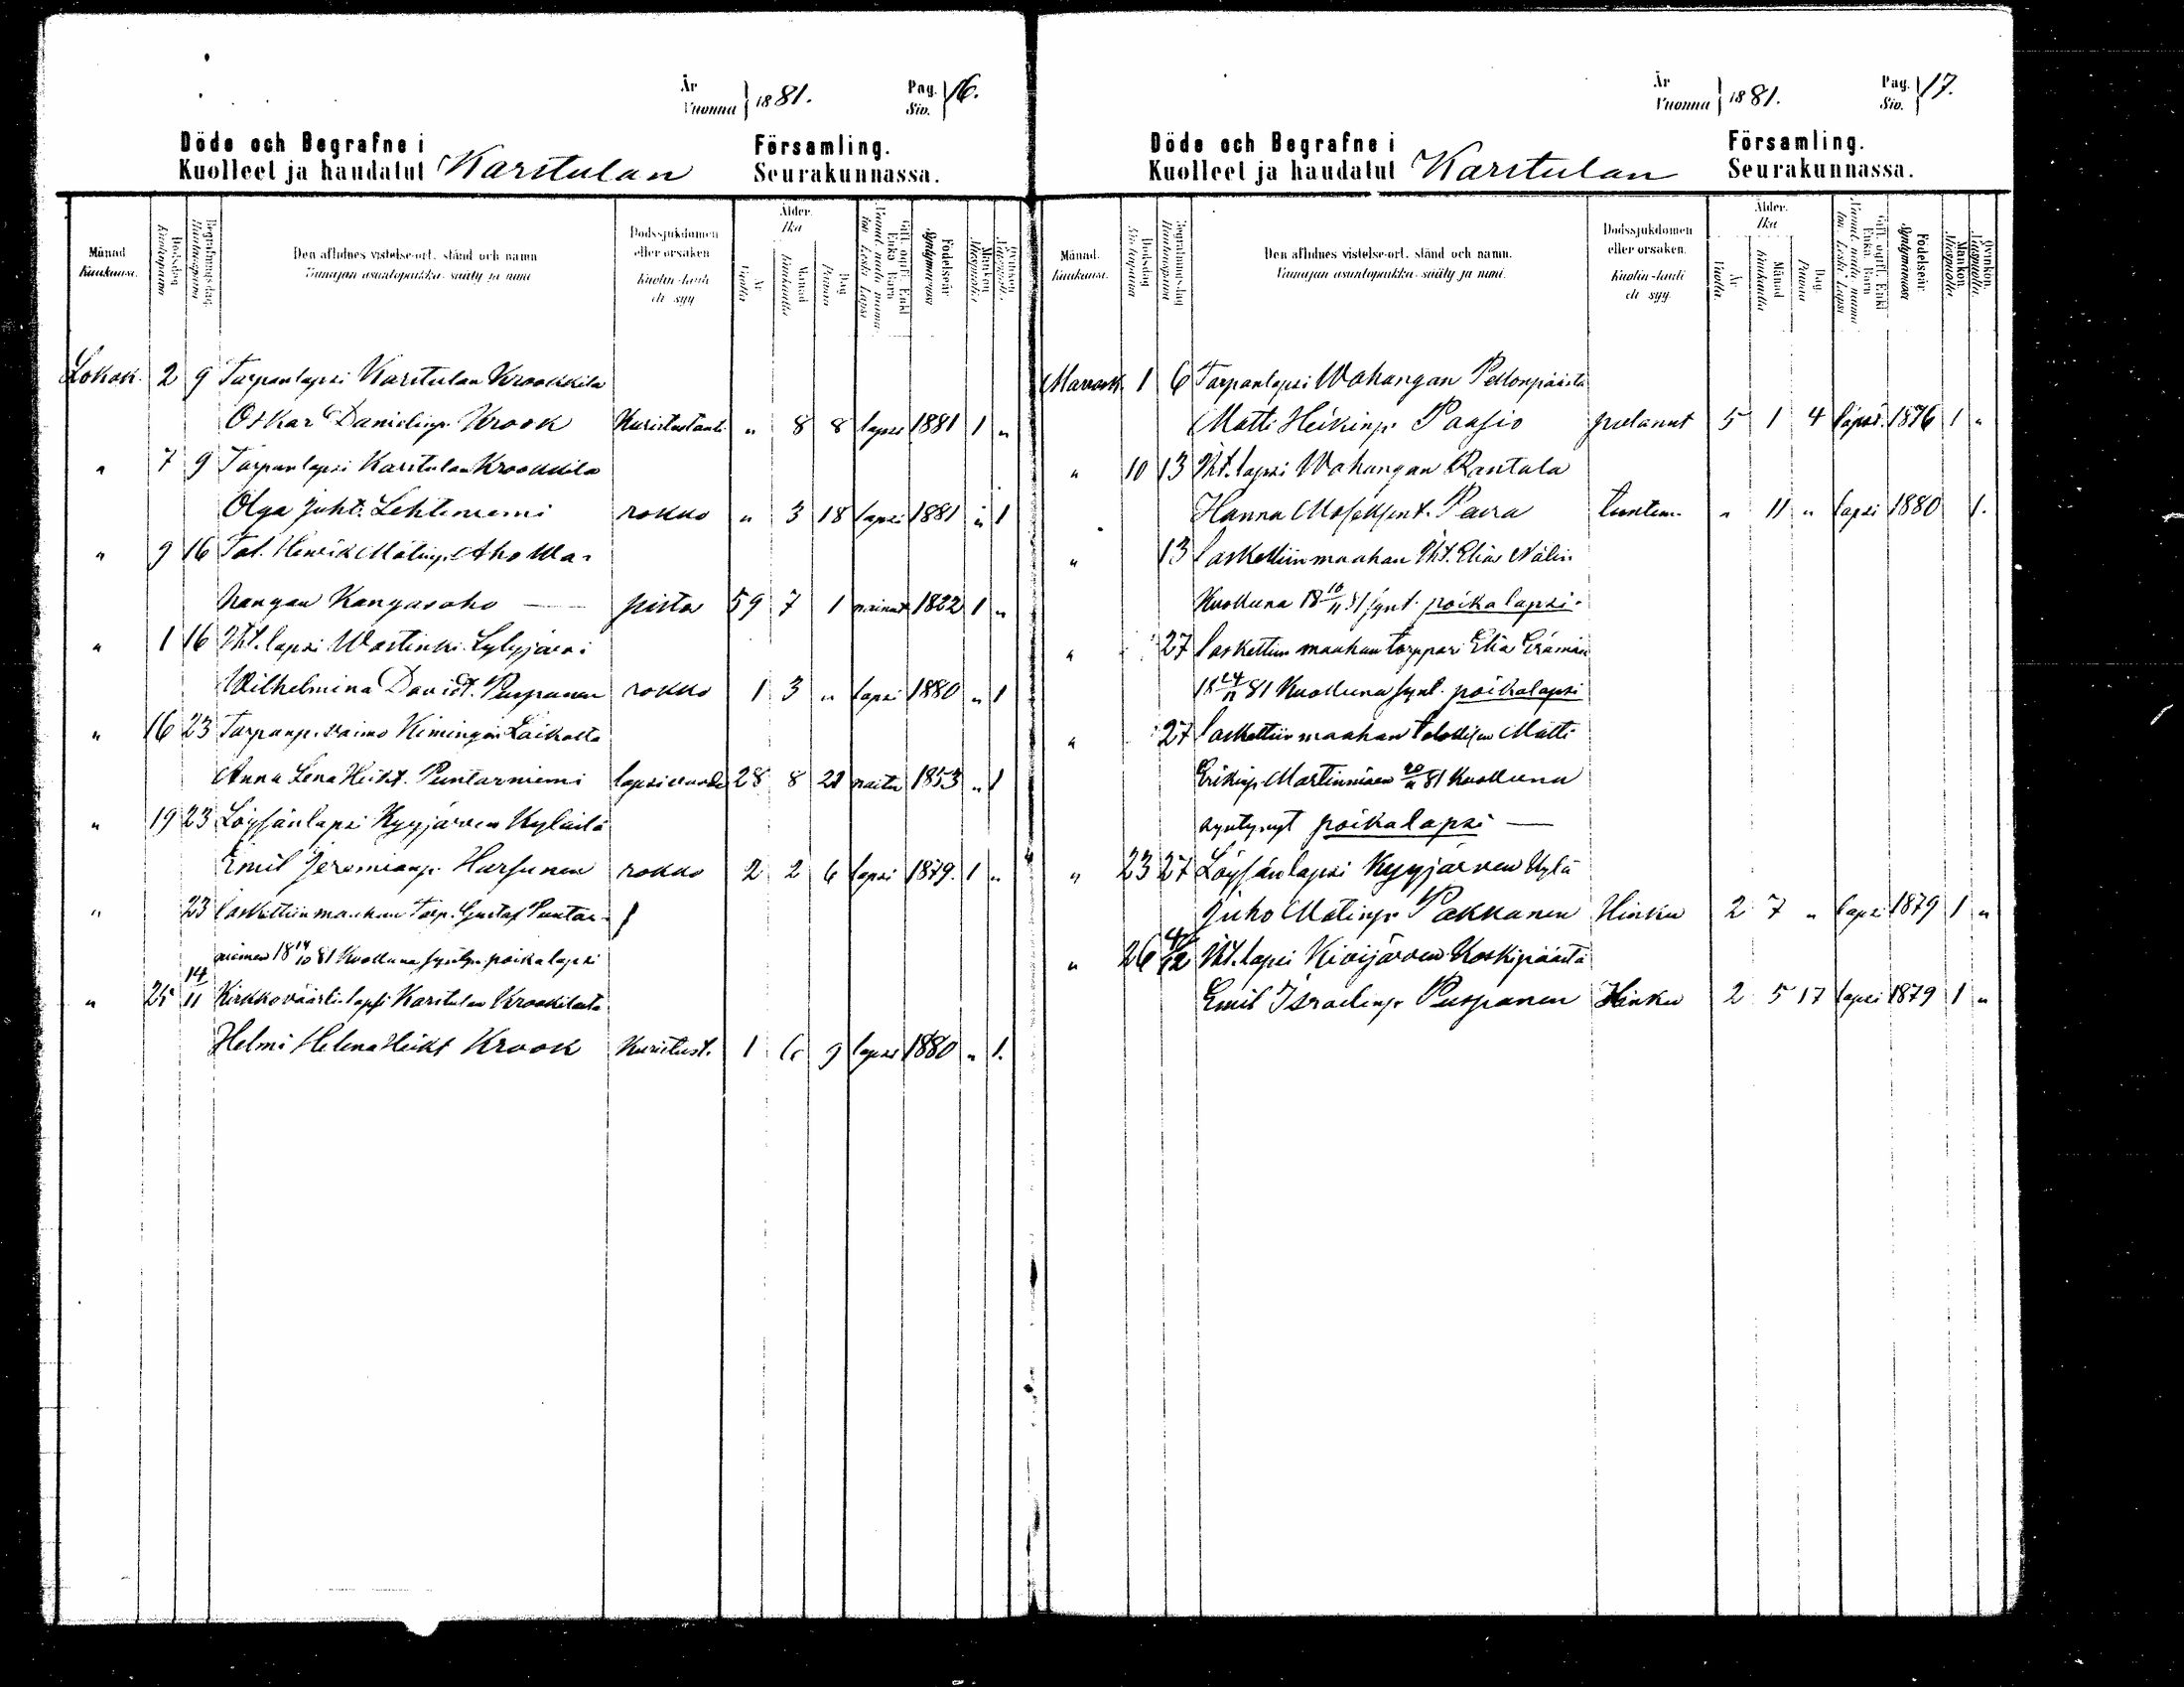 År
Vuonna } 1881.
Pag.
Siv. } 16.
Döde och Begrafne i
Kuolleet ja haudatut Karstulan
Församling.
Seurakunnassa.
Månad
Kuukausi.
Dödsdag
Kuolopäivä
Begrafningsdag
Hautauspäivä
Den aflidnes vistelse-ort, stånd och namn
Vainajan asuntopaikka, sääty ja nimi
Dödssjukdomen
eller orsaken
Kuolin-tauti
eli syy
Ålder.
Ikä
År
Vuotta
Månad
Kuukautta
Dag
Päivää
Födelseår
Syntymävuosi
Mankön
Miespuolia
Qvinkön
Lokak. 2 9 Torpanlapsi Karstulan Krookkila
Oskar Danielinp. Krook Kuristustauti " 8 8 lapsi 1881 1 "
" 7 9 Torpanlapsi Karstulan Krookkila
Olga Juht. Lehtiniemi rokko " 3 18 lapsi 1881 " 1
" 9 16 Tal. Henrik Matinp. Aho Wa-
hangan Kangasaho — pisto 59 7 1 nainut 1822 1 "
" 1 16 Iht. lapsi Wastinki Lylyjärvi
Wilhelmina Davidt. Purpanen rokko 1 3 " lapsi 1880 " 1
" 16 23 Torpanp. vaimo Kimingin
Anna Lena Heikt. Puntarniemi lapsivuode 28 8 21 naitu 1853 " 1
" 19 23 Löysänlapsi Kyyjärven Kylästä
Emil Jeremianp. Hursunen rokko 2 2 6 lapsi 1879. 1 "
" 23 laskettiin maahan Torp. Gustaf Puntar-
niemen 18 14/10 81 Kuolluna syntyn. poikalapsi
" 25 14/11 Kirkkoväärti lapsi Karstulan Krookilasta
Helmi Helena Heikt Krook Kuristust. 1 6 9 lapsi 1880 " 1.
År
Vuonna } 1881.
Pag.
Siv. } 17.
Döde och Begrafne i
Kuolleet ja haudatut Karstulan
Församling.
Seurakunnassa.
Månad.
Kuukausi.
Dödsdag
Kuolopäivä
Begrafningsdag
Hautauspäivä
Den aflidnes vistelse-ort, stånd och namn.
Vainajan asuntopaikka, sääty ja nimi.
Dödssjukdomen
eller orsaken.
Kuolin-tauti
eli syy.
Ålder.
Ikä
År
Vuotta
Månad
Kuukautta
Dag.
Päivää
Födelseår
Syntymävuosi
Mankön
Miespuolia
Qvinkön.
Marrask. 1 6 Torpanlapsi Wahangan Pellonpäästä
Matti Heikinp. Paasio palanut 5 1 4 lapsi. 1876 1 "
" 10 13 Iht. lapsi Wahangan Rantala
Hanna tuntem. " 11 " lapsi 1880 1.
" 13 laskettiin maahan Iht. Elias Nälin
Kuolluna 18 10/11 81 synt. poikalapsi.
" 27 laskettiin maahan torppari Elia Erämään
18 24/11 81 Kuolluna synt. poikalapsi
" 27 laskettiin maahan talollisen Matti
Erikinp. Martinmäen 20/11 81 Kuolluna
syntynyt poikalapsi —
" 23 27 Löysänlapsi Kyyjärven Kylä
Juho Matinp. Pakkanen Hinku 2 7 " lapsi 1879 1 "
" 26 4/12 Iht. lapsi Kivijärven Koskipäästä
Emil Israelinp. Purpanen Hinku 2 5 17 lapsi 1879 1 "